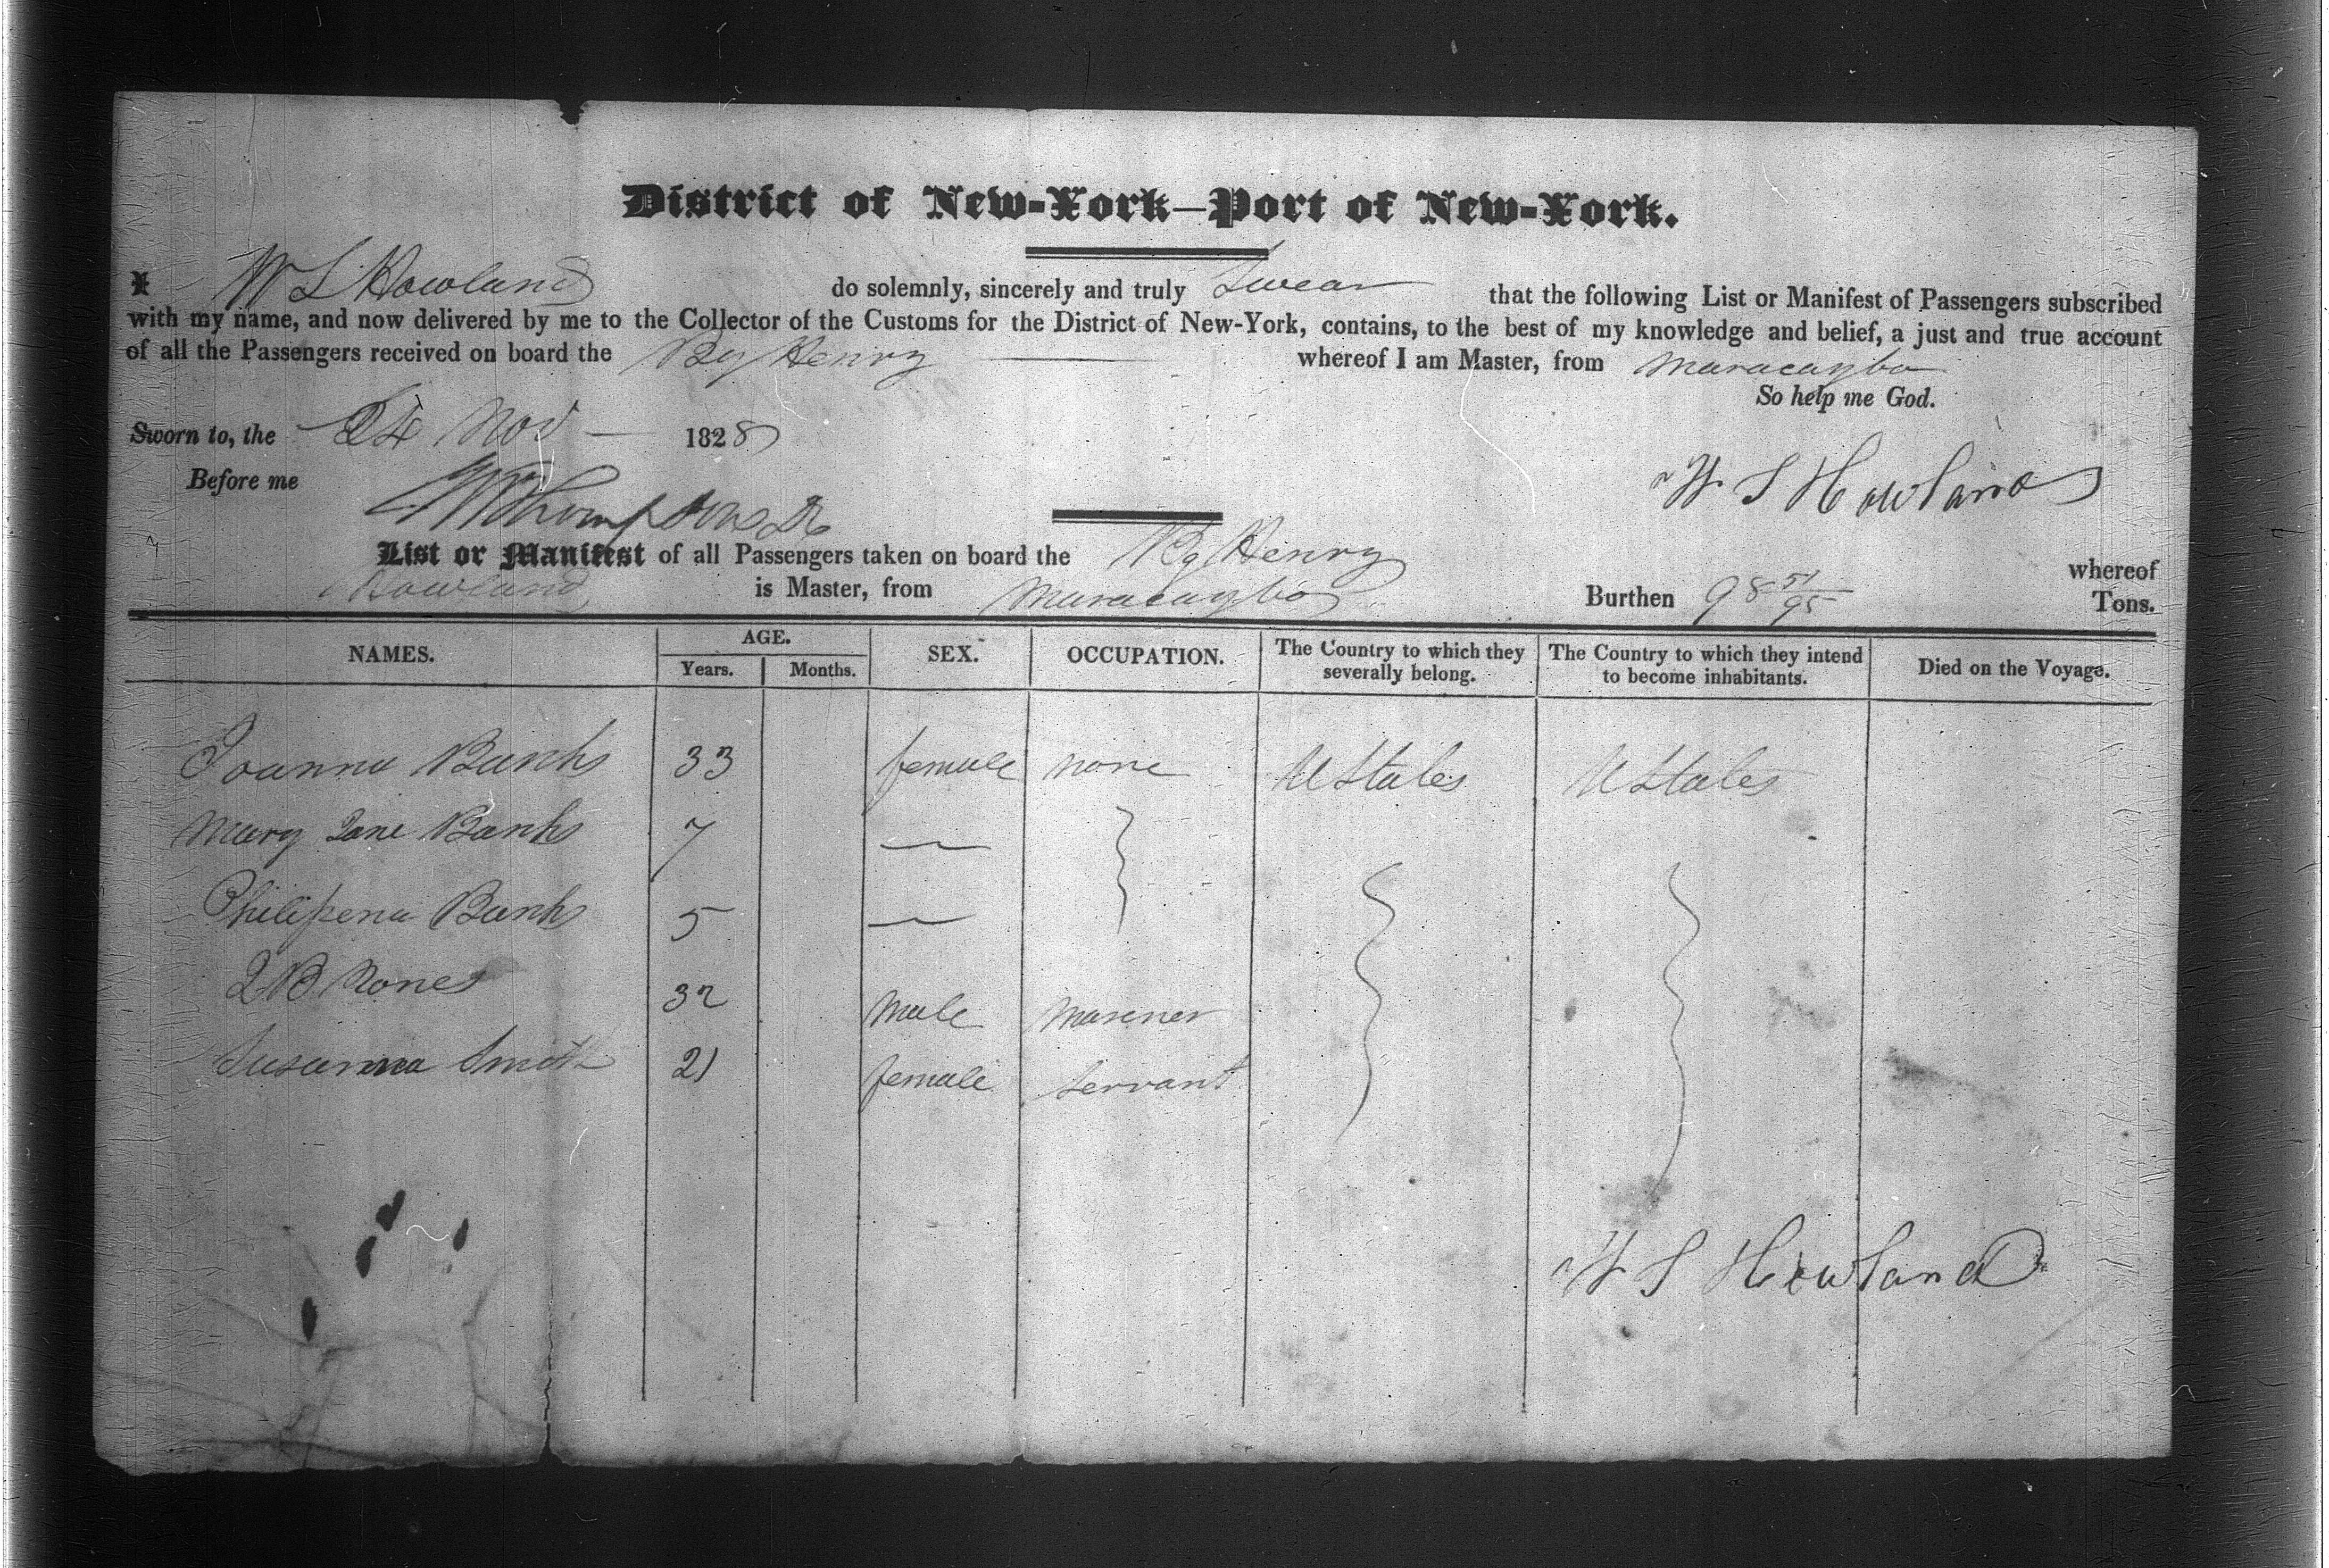 District of New-York—Port of New-York.
I W S Howland do solemnly, sincerely and truly Swear that the following List or Manifest of Passengers subscribed
with my name, and now delivered by me to the Collector of the Customs for the District of New-York, contains, to the best of my knowledge and belief, a just and true account
of all the Passengers received on board the Bg Henry whereof I am Master, from Maracaybo
So help me God.
Sworn to, the 24 Nov 1828
Before me W S Howland
List or Manifest of all Passengers taken on board the Bg Henry whereof
Howland is Master, from Maracaybo Burthen 98 51/95 Tons.
NAMES. AGE. Years. Months. SEX. OCCUPATION. The Country to which they severally belong. The Country to which they intend to become inhabitants. Died on the Voyage.
Joanna Banks 33 female none U States U States
Mary Jane Banks 7 —
Philipena Banks 5 —
J B Nones 32 Male Mariner
Susanna Smith 21 female Servant
W S Howland